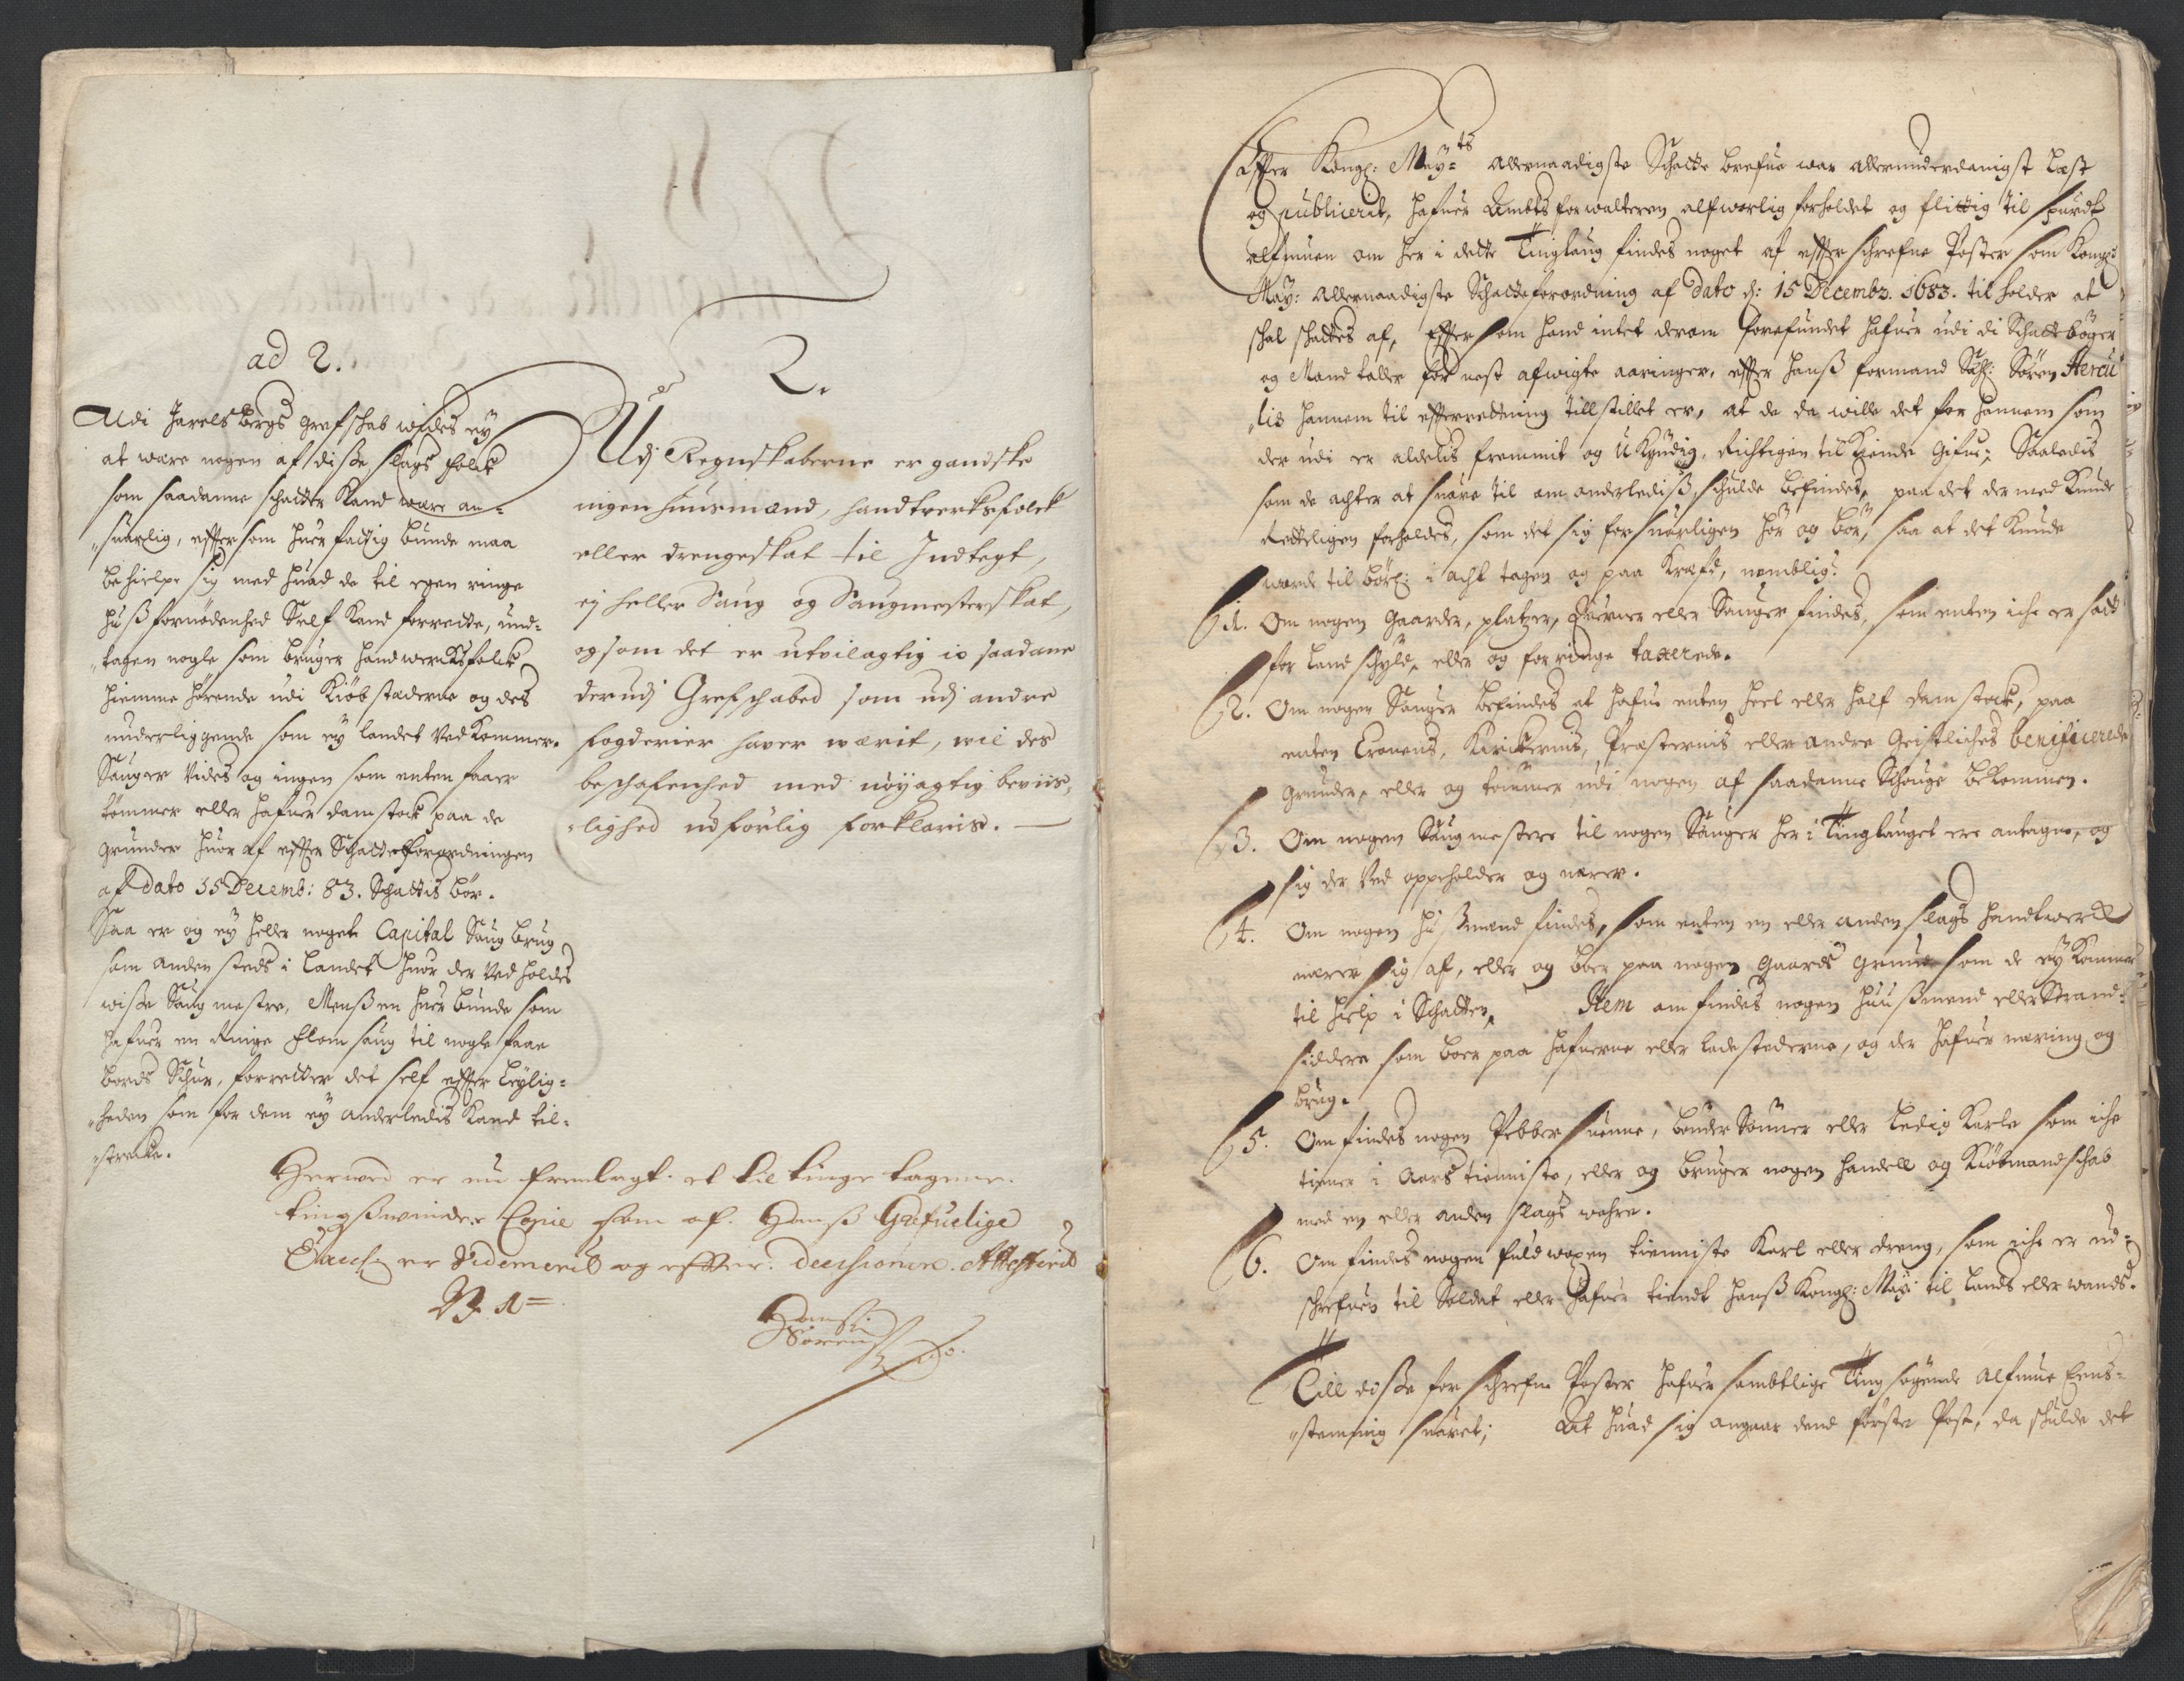 ad 2.
Udi Jarelsbergs Grefschab vides ey
at være nogen af disse slags folck
som saadanne schatter kand være an-
„suarlig, effter som huer fattig bunde maa
behielpe sig med huad de til egen ringe
husfornødenhed Self kand forrette, und-
„tagen nogle som bruger handwercksfolck
hiemme hørende udi Kiøbstæderne og des
underliggende som ey landet vedkommer.
Sauger vides og ingen som enten faaer
tømmer eller hafuer damstock paa de
grunder huor af effter Schatteforordningen
af dato 15 Decemb: 83. Schattis bør.
Saa er og ey heller noget Capital Saug brug
som andensteds i landet huor der ved holdes
wisse Saugmestre, Menss en huer bunde som
hafuer en Ringe flom saug til nogle faae
bords Schur, forretter det self effter Leylig-
„heden som for dem ey anderledis kand til-
„strecke.
2.
Udj Regnskaberne er gandske
ingen huusmænd, handtverksfolck
eller drengeskat til Indtegt,
ej heller Saug og Saugmesterskat,
og som det er utvilagtig io saadane
derudj Grefschabed som udj andre
fogderier haver wærit, vil des
beschafenhed med nøyagtig beviis-
„lighed udførlig forklaris. —
Herwed er nu fremlagt et til tinge tagne
tingswinde Copie som af Hans Grefuelige
er Videmerit og effter decisionen Attesterid
N. 1=
Hans
Sørens
Effter Kongl: May:ts allernaadigste Schatte brefue war allerunderdanigst læst
og publicerit, hafuer Ambtsforwalteren alfworlig forholdet og flittig tilspurdt
almuen om her i dette Tinglaug findes noget af effterschrefne Poster som Kongl:
May: allernaadigste Schatteforordning af dato d: 15 Decembr. 1683. tilholder at
schal schattes af, Effter som hand intet derom forefundet hafuer udi di Schattebøger
og Mandtaller for nest afwigte aaringer, effter hanss formand Sahl: Søren Hercu-
„lis hannem til effterrettning tillstillet er, at de da wille det for hannem som
der udi er aldelis fremmit og ukyndig, Richtigen tilkiende gifue; Saaledis
som de achter at suare til om anderlediss schulde befindes, paa det der med kunde
Retteligen forholdes, som det sig forsuarligen hør og bør, saa at det kunde
worde tilbørl: i acht tagen og paa krafd, nemblig:
1. Om nogen Gaarder, platzer, Querner eller Sauger findes, som enten iche er satt
for landschyld, eller og for ringe taxerede.
2. Om nogen Sauger befindes at hafue enten heel eller half damstock, paa
enten Cronens, Kirckernis, Præsternis eller andre Geistliches benificerede
grunder, eller og tømmer udi nogen af saadanne Schouge bekommen.
3. Om nogen Saugmestere til nogen Sauger her i Tinglauget ere antagne, og
sig der ved oppeholder og nærer.
4. Om nogen Hussmænd findes, som enten en eller anden slags handtwerck
nærer sig af, eller og boer paa nogen gaards grund som de ey kommer
til hielp i Schatten, Item om findes nogen huussmænd eller Strand-
siddere som boer paa hafnerne eller ladestederne, og der hafuer næring og
brug.
5. Om findes nogen Pebbersuenne, bønder Sønner eller Ledig Karle som iche
tiener i aars tienniste, eller og bruger nogen handell og Kiøbmandschab
med en eller anden slags wahre.
6. Om findes nogen fuldwoxen tienniste Karl eller dreng, som iche er ud-
schrefuen til Soldat eller hafuer tiendt hanss Kongl: May: til Lands eller wands.
Till disse forschrefne Poster hafuer samtlige Tingsøgende almue Eens-
„stemmig suaret; At huad sig angaar dend første Post, da schulde det